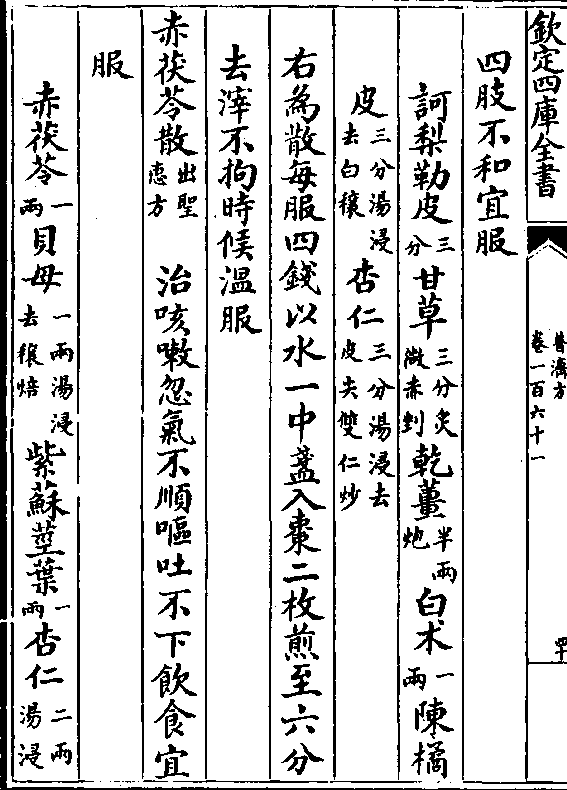 欽定四庫全書
普濟方
卷一百六十一
四十
四肢不和宜服
訶梨勒皮三分甘草三分炙微赤剉乾薑半兩炮白朮一兩陳橘
皮三分湯浸去白穰杏仁三分湯浸去皮尖雙仁炒
右為散每服四錢以水一中盞入棗二枚煎至六分
去滓不拘時候溫服
赤茯苓散出聖惠方 治咳嗽忽氣不順嘔吐不下飲食宜
服
赤茯苓一兩貝母一兩湯浸去穰焙紫蘇莖葉一兩杏仁二兩湯浸